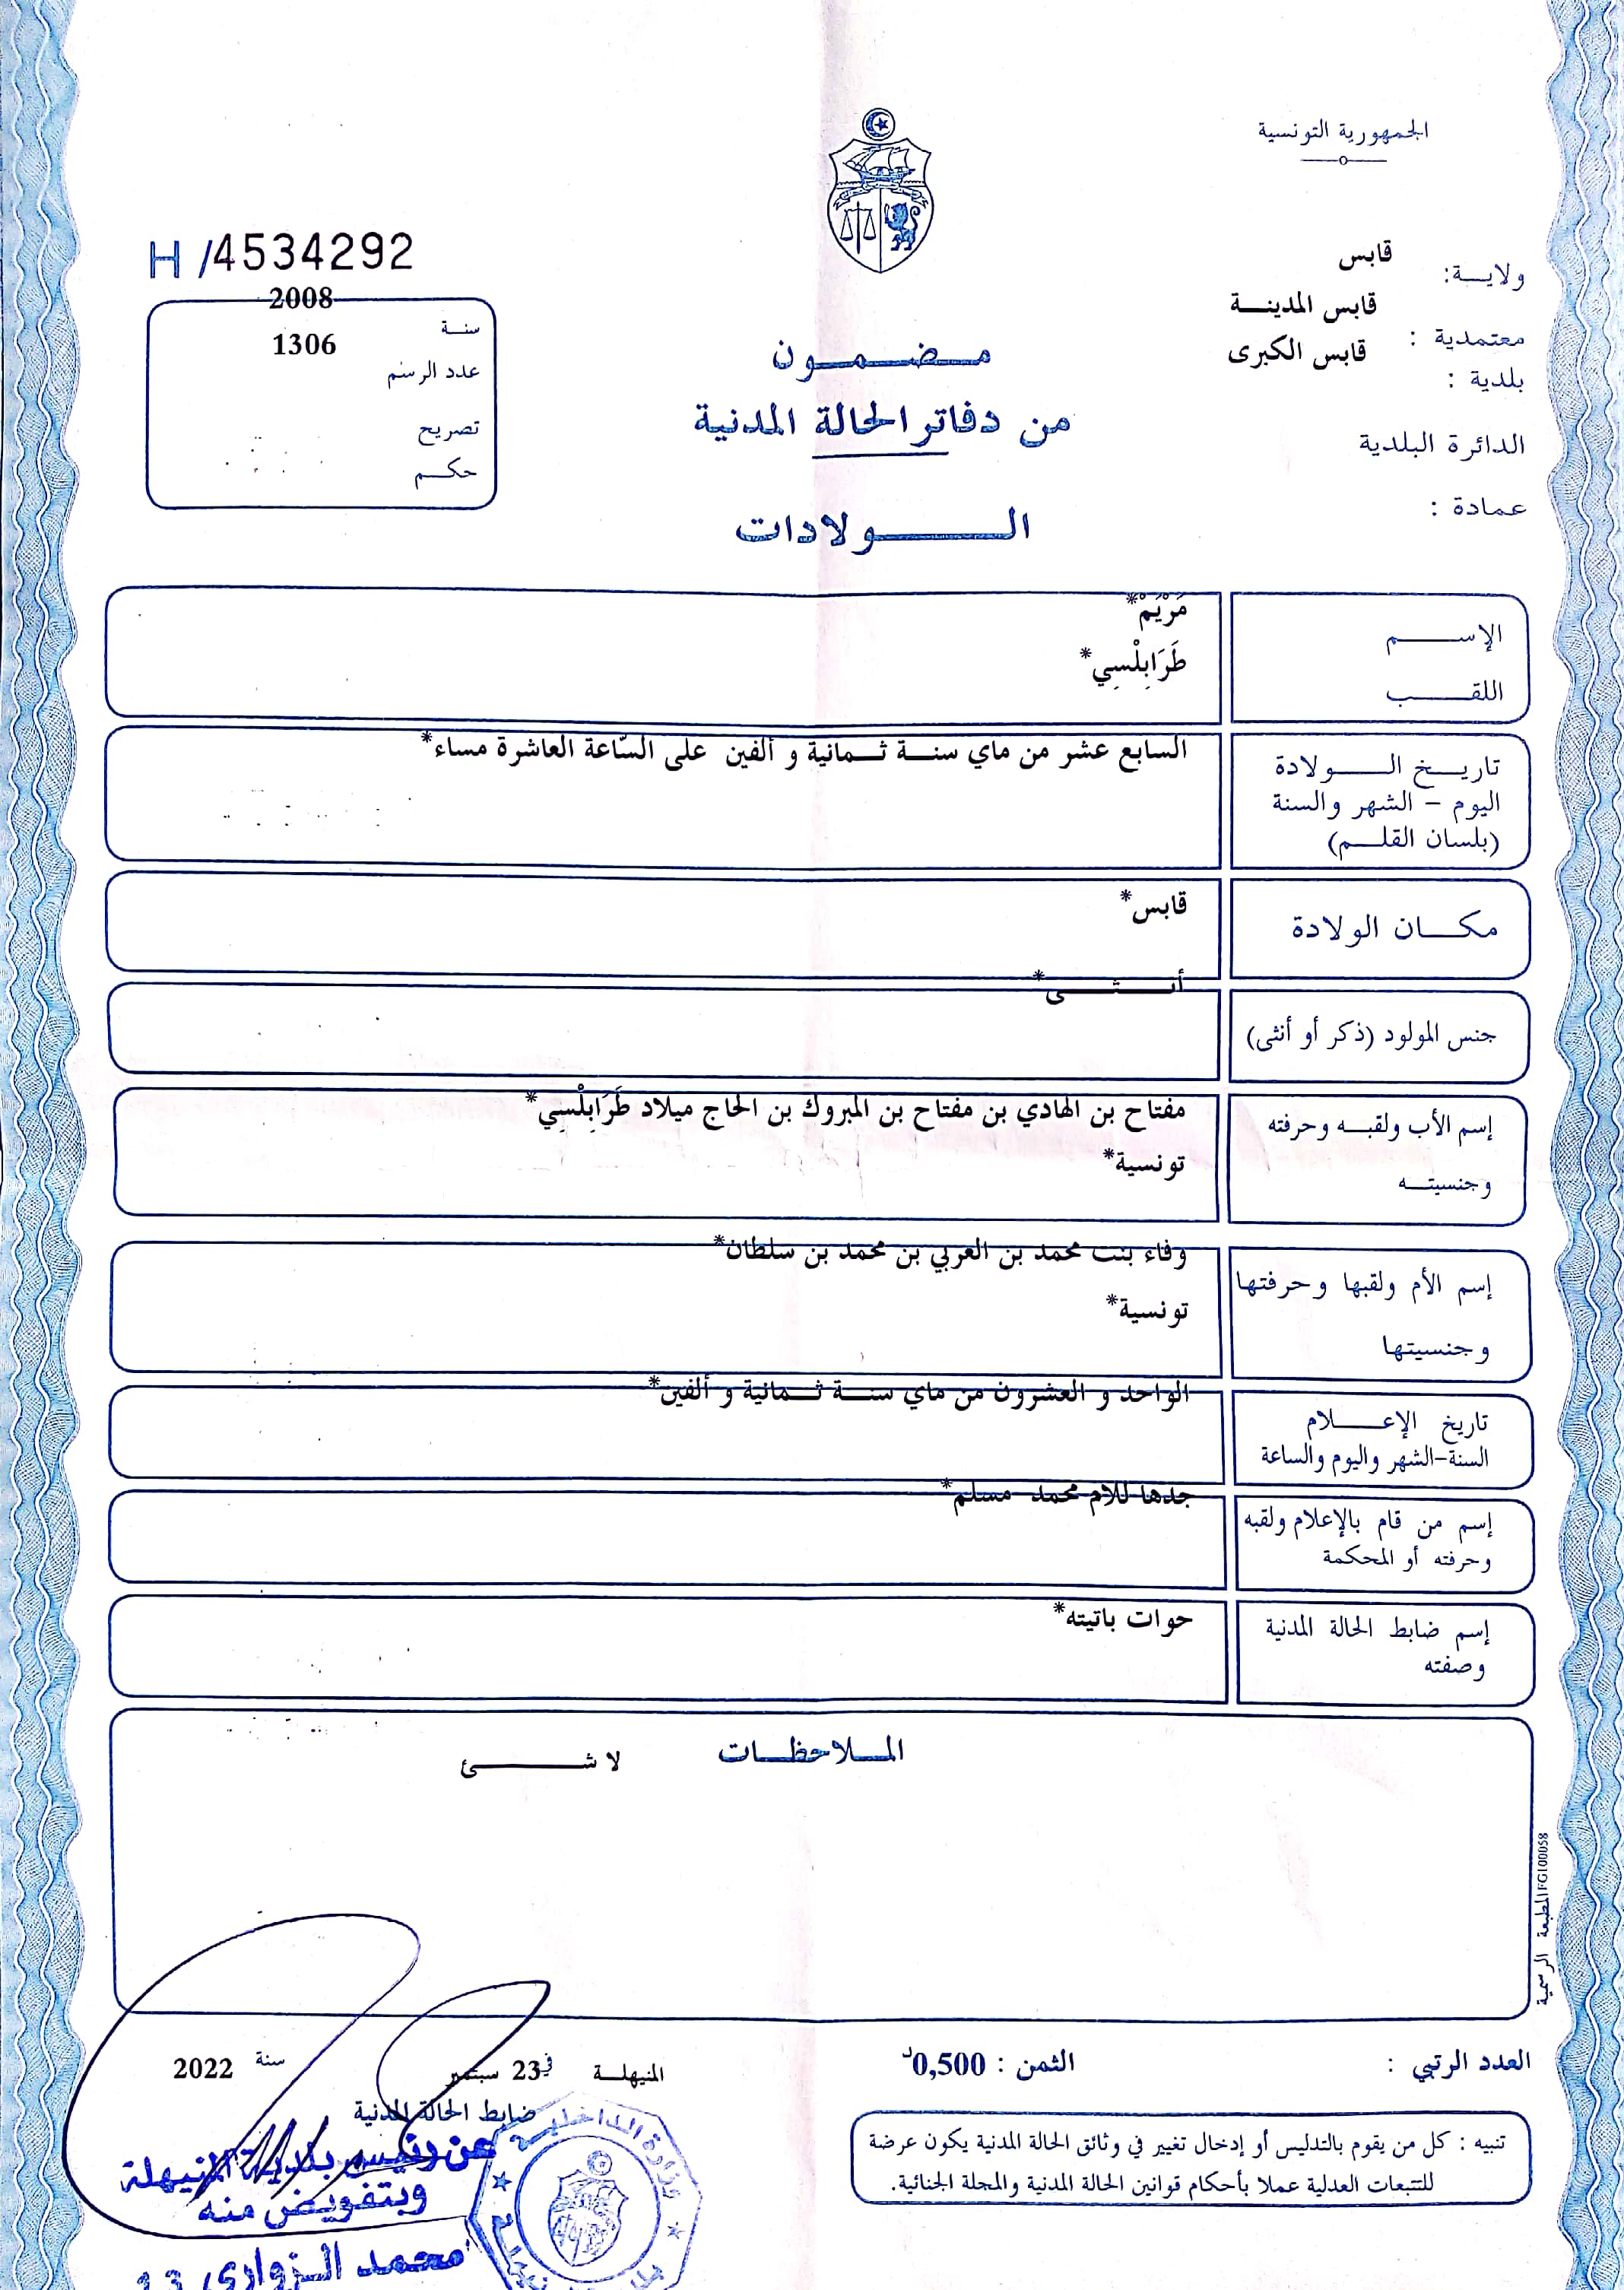 الجمهورية التونسية
ولايـــة: قابس
معتمدية : قابس المدينـــة
بلدية : قابس الكبرى
الدائرة البلدية
عمادة :
H/4534292
سنــة 2008
عدد الرسم 1306
تصريح
حكــم
مـــضـــمـــون
من دفاتر الحالة المدنية
الـــــــولادات
الإســـــم مَرْيَمْ*
اللقـــــب طَرَابِلْسِي*
تاريــخ الـــــولادة السابع عشر من ماي سنــة ثــمانية و ألفين على السّاعة العاشرة مساء*
اليوم – الشهر والسنة
(بلسان القلـــم)
مكـــان الولادة قابس*
جنس المولود (ذكر أو أنثى) أنـــثـــى*
إسم الأب ولقبــه وحرفته مفتاح بن الهادي بن مفتاح بن المبروك بن الحاج ميلاد طَرَابِلْسِي*
وجنسيتــه تونسية*
إسم الأم ولقبها وحرفتها وفاء بنت محمد بن العربي بن محمد بن سلطان*
وجنسيتها تونسية*
تاريخ الإعــــلام الواحد و العشرون من ماي سنــة ثــمانية و ألفين*
السنة-الشهر واليوم والساعة
إسم من قام بالإعلام ولقبه جدها للام محمد مسلم*
وحرفته أو المحكمة
إسم ضابط الحالة المدنية حوات باتيته*
وصفته
المــلاحظــات لا شـــــئ
المطبعة الرسمية FG100058
العدد الرتبي :
الثمن : 0,500د
المنيهلــة في 23 سبتمبر سنة 2022
ضابط الحالة المدنية
عن رئيس بلدية المنيهلة
وبتفويض منه
محمد الـزواري
وزارة الداخليـــة
تنبيه : كل من يقوم بالتدليس أو إدخال تغيير في وثائق الحالة المدنية يكون عرضة
للتتبعات العدلية عملا بأحكام قوانين الحالة المدنية والمجلة الجنائية.